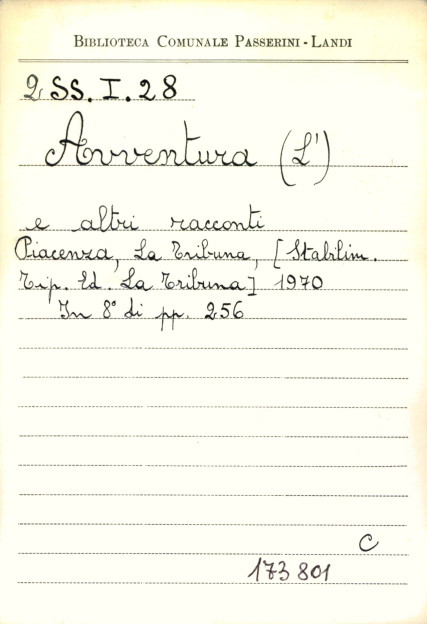 BIBLIOTECA COMUNALE PASSERINI - LANDI
2 SS. I. 28
Avventura (L')
e altri racconti
Piacenza, La Tribuna, [Stabilim.
Tip. Ed. La Tribuna] 1970
In 8° di pp. 256
C
173801